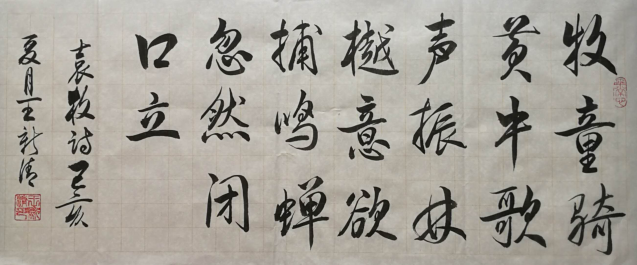 牧童骑
黄牛歌
声振林
樾意欲
捕鸣蝉
忽然闭
口立
袁枚诗己亥
夏月王新